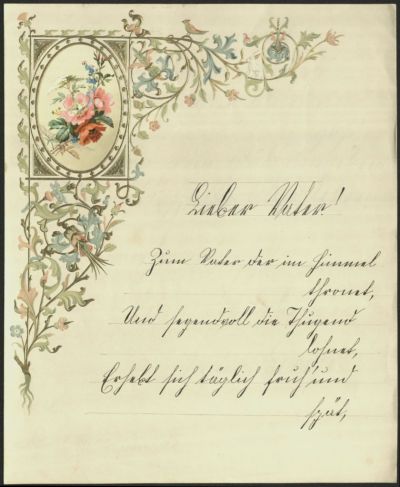 Lieber Vater!
Zum Vater der im Himmel
thronet,
Und segendvoll die Thugend
lohnet,
Erhebt sich täglich früh' und
spät,